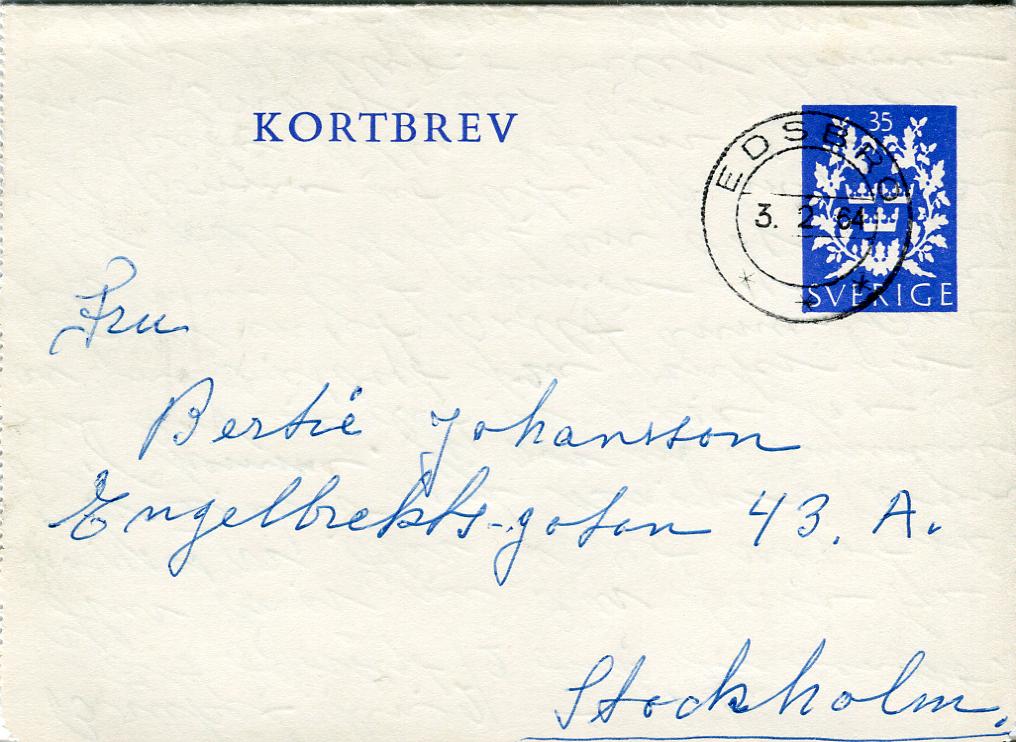 KORTBREV
35
EDSBRO
3. 2 64
SVERIGE
Fru
Bertie Johansson
Engelbrekts-gatan 43. A.
Stockholm.